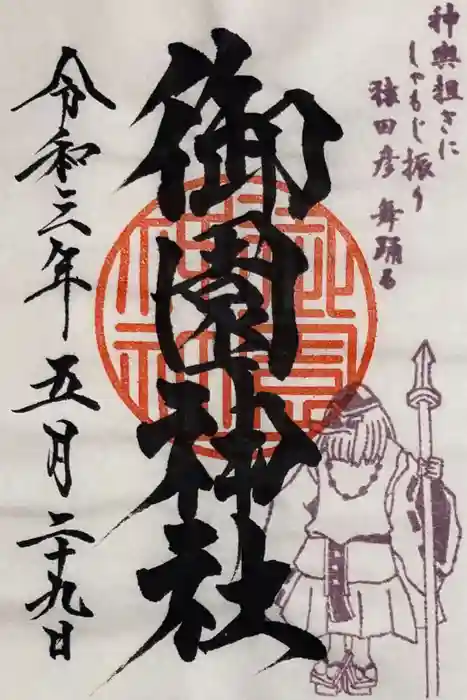 神輿担ぎに
しゃもじ振り
猿田彦 舞踊る
御園神社
令和三年 五月 二十九日